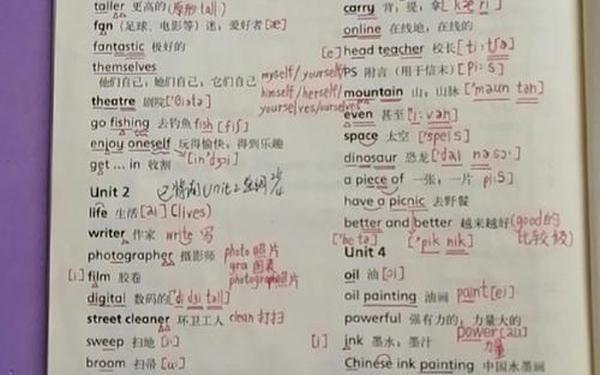 taller 更高的(原形 tall)
fan (足球、电影等) 迷,爱好者[æ]
fantastic 极好的
themselves
他们自己,她们自己,它们自己 myself/yourself
himself/herself/
theatre 剧院['θɪətə] yourselves/ourselves
go fishing 去钓鱼 fish [fiʃ]
enjoy oneself 玩得愉快,得到乐趣
get ... in 收割 [in'dʒɔi]
Unit 2
life 生活[ai] (lives)
writer 作家 write 写
photographer 摄影师 photo 照片
gra 图表
[i] film 胶卷 photograph照片
digital 数码的['di dʒi təl]
street cleaner 环卫工人 clean 打扫
sweep 扫地 [i:]
broom 扫帚 [u:]
carry 背,提,拿['kæ ri]
online 在线地,在线的
[e] head teacher 校长 [ti: tʃə]
PS 附言 (用于信末) [Pi: S]
mountain 山;山脉 ['maun tən]
even 甚至 ['i: vən]
space 太空 ['speis]
dinosaur 恐龙 ['dai nə sɔ:]
a piece of 一张,一片 pi:S]
have a picnic 去野餐
better and better 越来越好(good的
['be tə] ['pik nik] 比较级)
Unit 4
oil 油 [ɔi]
oil painting 油画 paint[ei]
powerful 强有力的,力量大的
power[au]
[i] ink 墨水;墨汁 力量
Chinese ink painting 中国水墨画